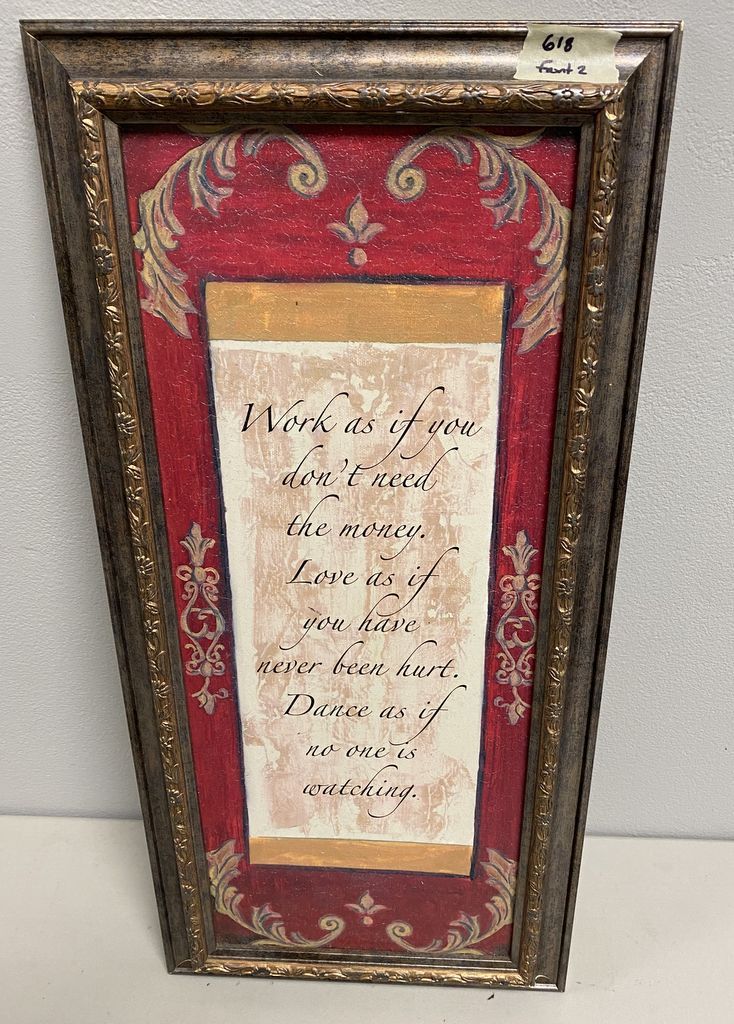 618
Front 2
Work as if you
don't need
the money.
Love as if
you have
never been hurt.
Dance as if
no one is
watching.